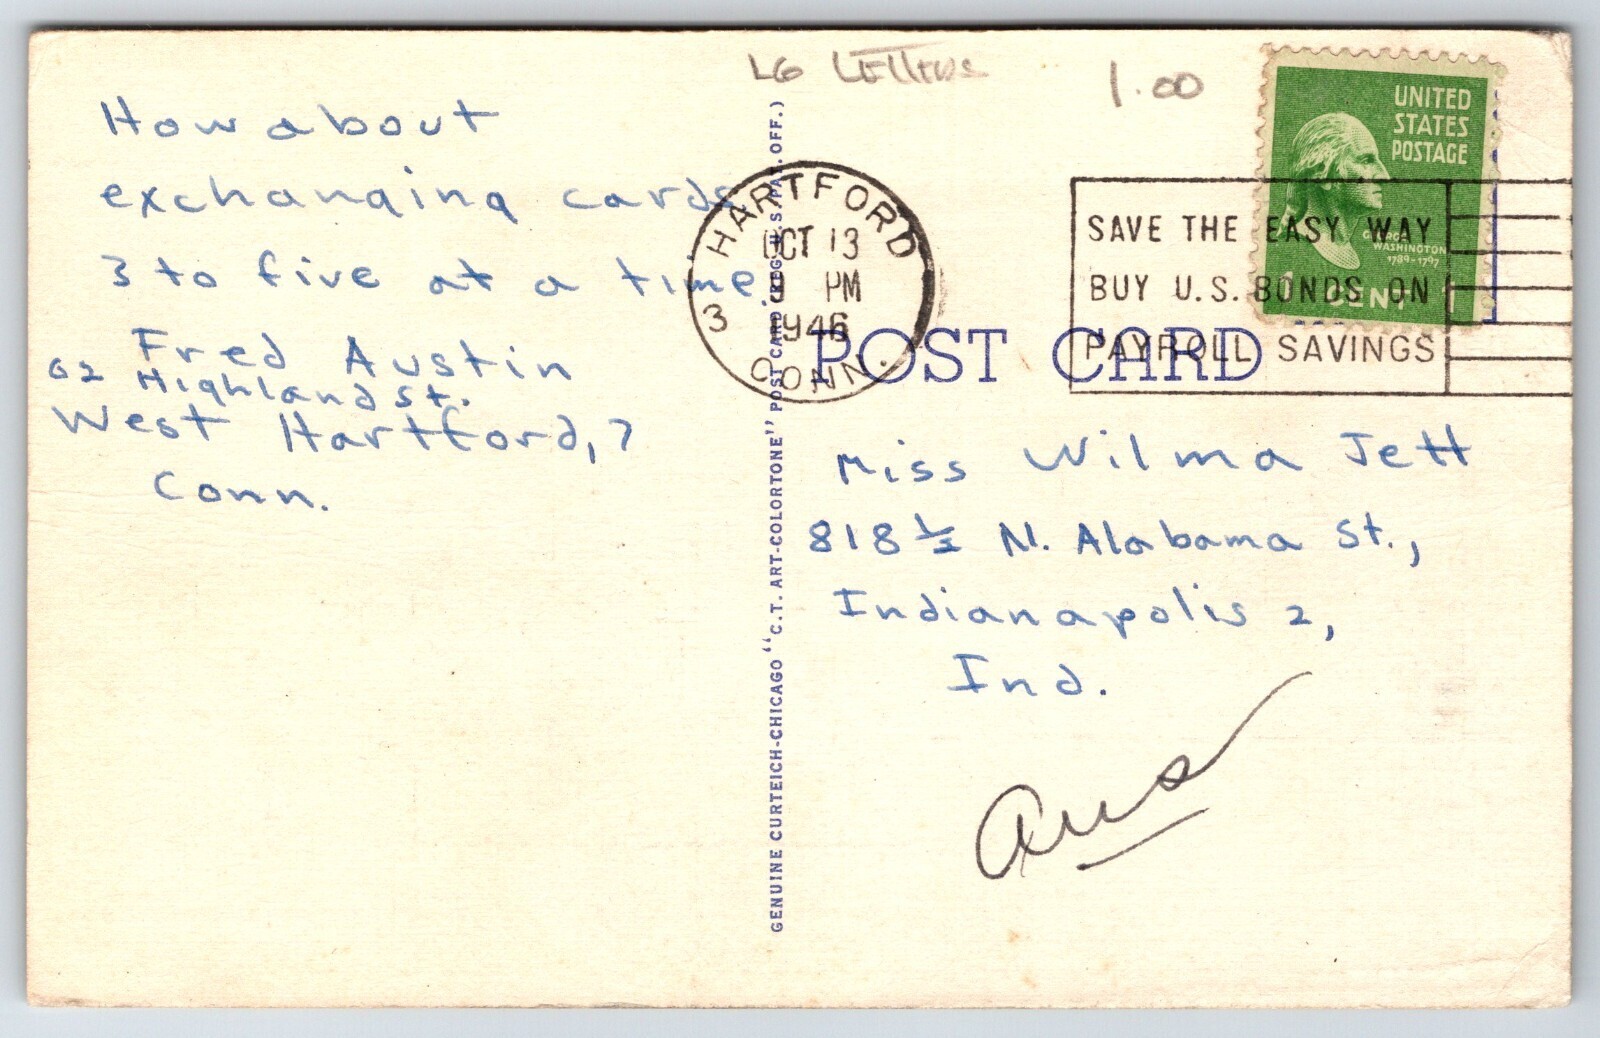 LG LETTERS
1.00
How about
exchanging cards
3 to five at a time.
Fred Austin
62 Highland St.
West Hartford, 7
Conn.
GENUINE CURTEICH-CHICAGO "C.T. ART-COLORTONE" POST CARD (REG. U.S. PAT. OFF.)
HARTFORD
OCT 13
9 PM
1946
3
CONN.
SAVE THE EASY WAY
BUY U.S. BONDS ON
PAYROLL SAVINGS
UNITED
STATES
POSTAGE
GEORGE
WASHINGTON
1789-1797
1 CENT
POST CARD
Miss Wilma Jett
818 1/2 N. Alabama St.,
Indianapolis 2,
Ind.
Ans